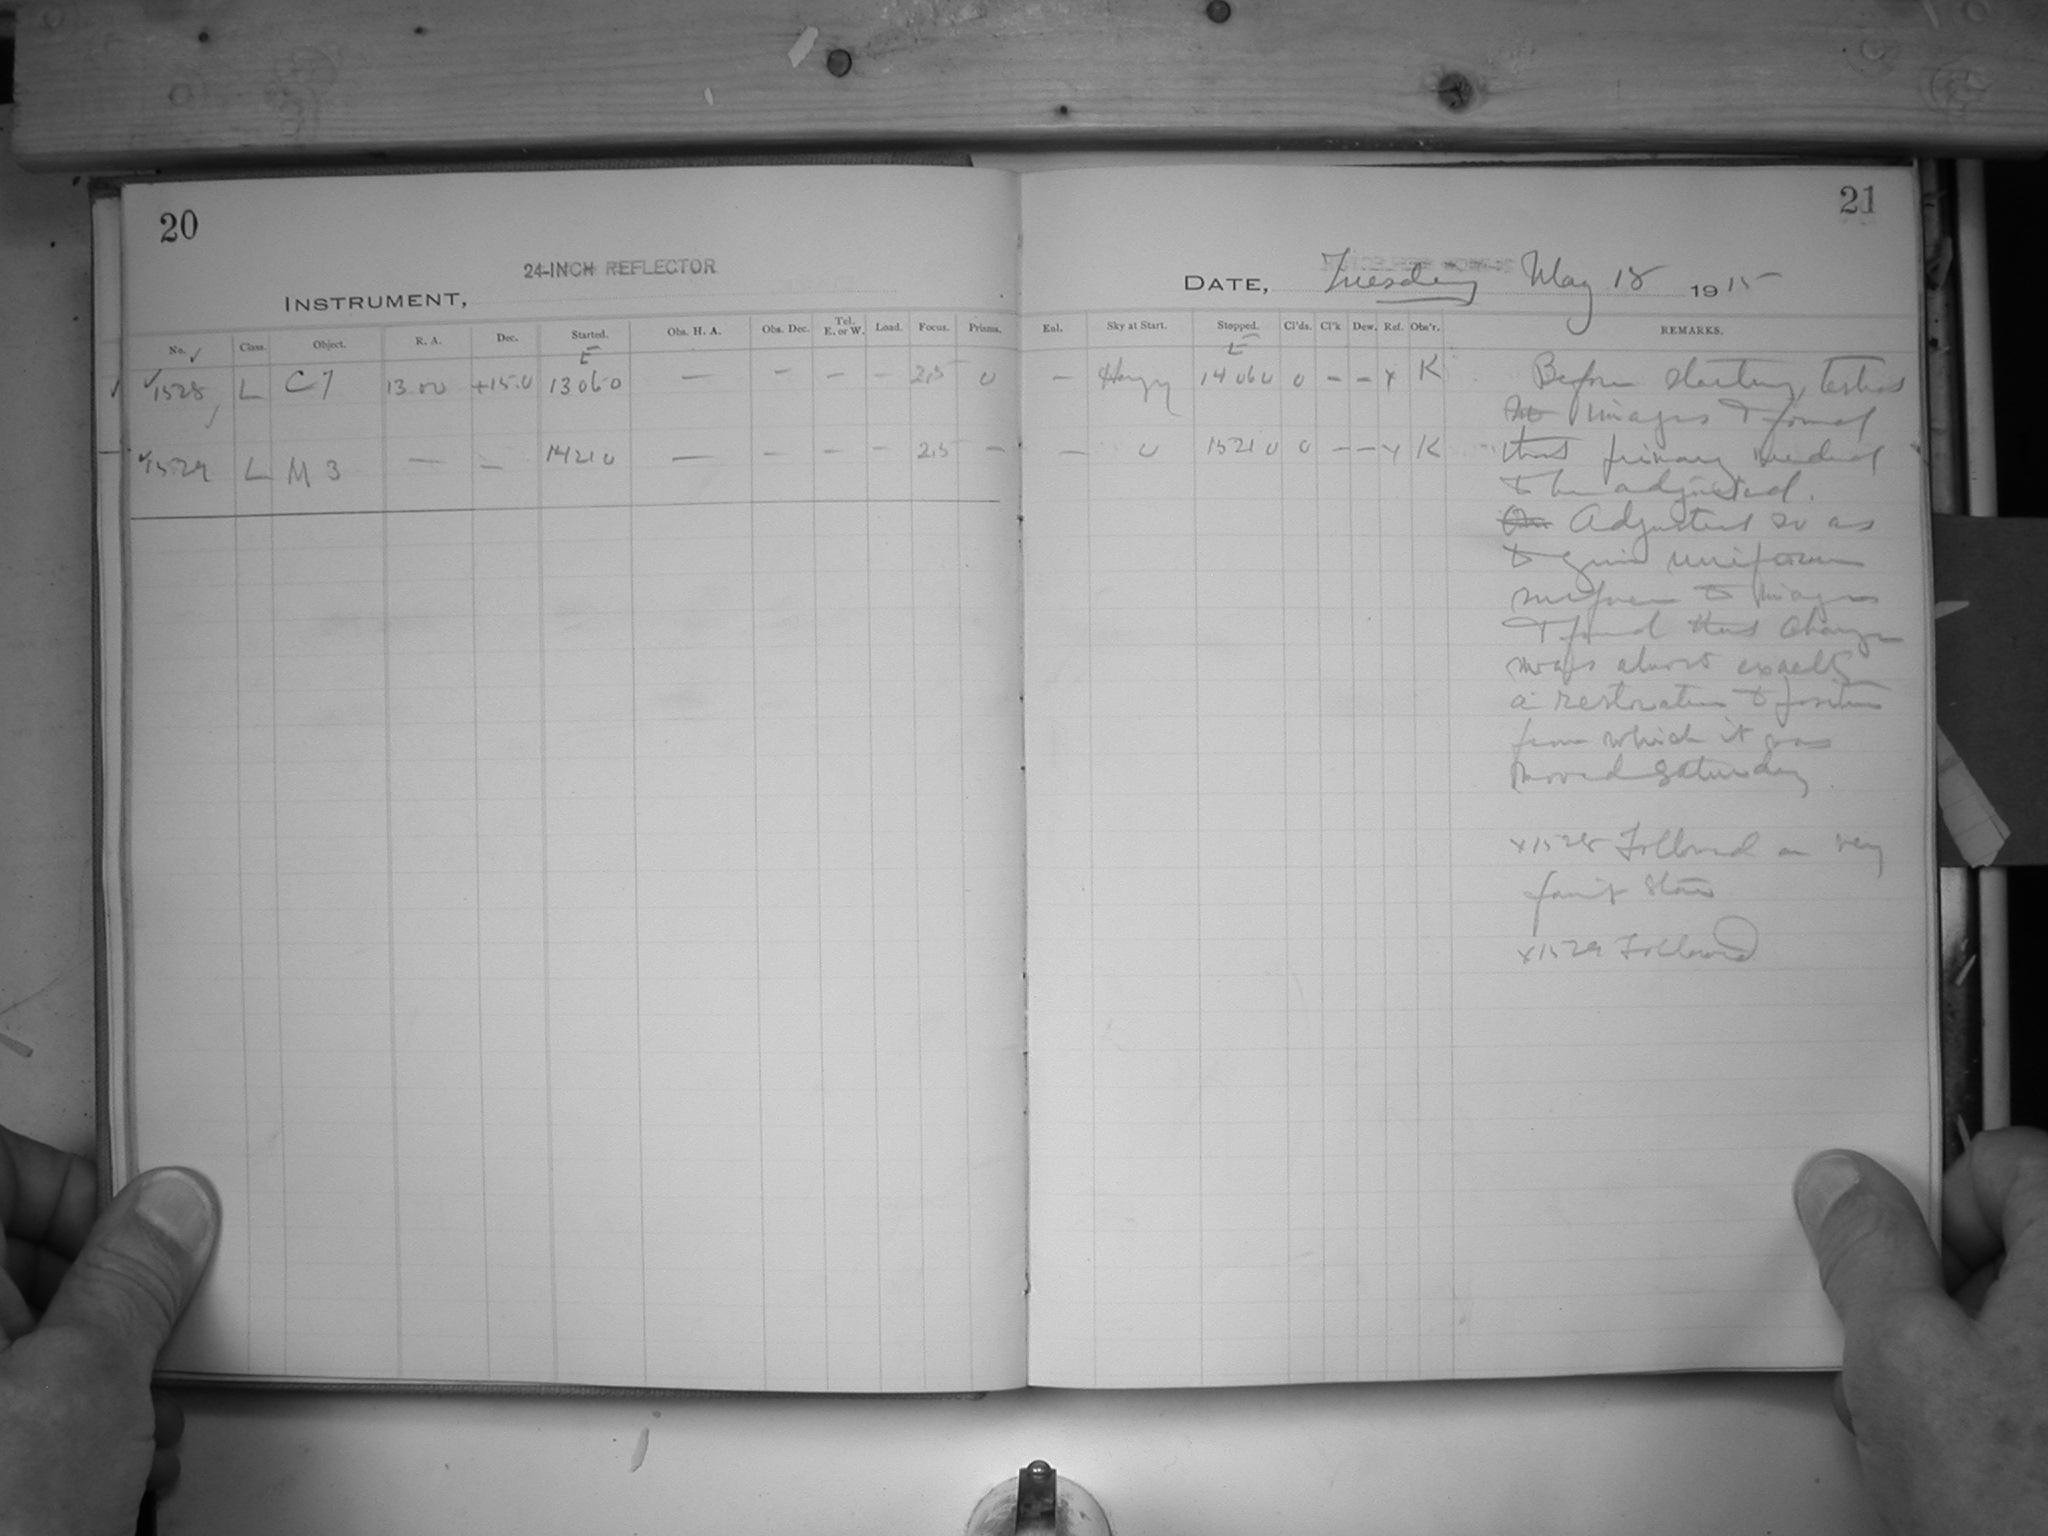 20
21
24-INCH REFLECTOR
INSTRUMENT,
DATE, Tuesday May 18 1915
No. ✓ Class. Object. R. A. Dec. Started. Obs. H. A. Obs. Dec. Tel. E. or W. Load. Focus. Prisms. Enl. Sky at Start. Stopped. Cl'ds. Cl'k Dew. Ref. Obs'r. REMARKS.
E E
✓1528 L C7 13.00 +15.0 13 06 0 — — — — 2.5 0 — Hazy 14 06 0 0 — — x K
✓1529 L M 3 — — 14 21 0 — — — — 2.5 — — 0 15 21 0 0 — — x K
Before starting, tested
images & found
that primary needed
to be adjusted.
Adjusted so as
to give uniform
to images
& found that change
was almost exactly
a restoration to position
from which it was
moved Saturday
x1528 Followed on very
faint star
x1529 Followed